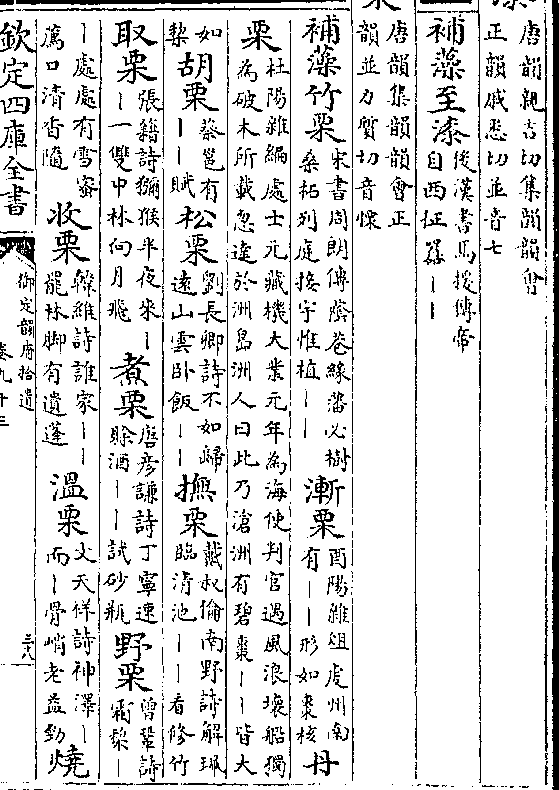 唐韻親吉切集韻韻會
正韻戚悉切並音七
補藻至漆後漢書馬援傳帝
自西征囂丨丨
唐韻集韻韻會正
韻並力質切音慄
補藻竹栗宋書周朗傳蔭巷緣藩必樹
桑柘列庭接宇惟植丨丨漸栗酉陽雜俎虔州南
有丨丨形如棗核丹
栗杜陽雜編處士元藏機大業元年為海使判官遇風浪壞船獨
為破木所載忽達於洲島洲人曰此乃滄洲有碧棗丨丨皆大
如
棃胡栗蔡邕有
丨丨賦松栗劉長卿詩不如歸
遠山雲卧飯丨丨撫栗戴叔倫南野詩解珮
臨清池丨丨看修竹
取栗張籍詩獼猴半夜來丨
丨一雙中林向月飛煮栗唐彦謙詩丁寧速
賒酒丨丨試砂瓶野栗曾鞏詩
霜棃丨
丨處處有雪蜜
薦口清香隨收栗韓維詩誰家丨丨
罷林脚有遺蓬溫栗文天祥詩神澤丨
而丨骨峭老益勁燒
欽定四庫全書
御定韻府拾遺
卷九十三
三八